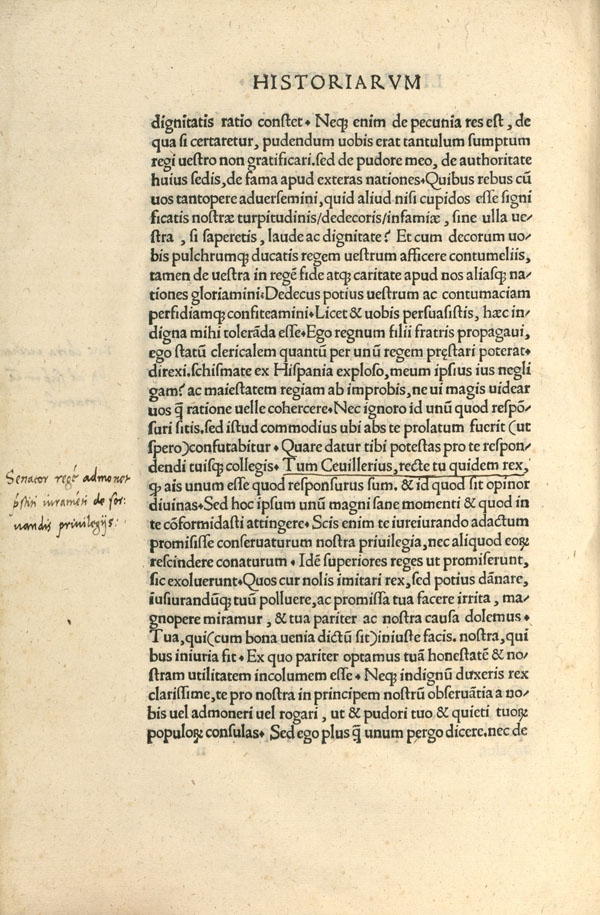 HISTORIARVM
dignitatis ratio constet. Neq; enim de pecunia res est, de
qua si certaretur, pudendum uobis erat tantulum sumptum
regi uestro non gratificari. sed de pudore meo, de authoritate
huius sedis, de fama apud exteras nationes. Quibus rebus cū
uos tantopere aduersemini, quid aliud nisi cupidos esse signi
ficatis nostræ turpitudinis/dedecoris/infamiæ, sine ulla ue/
stra, si saperetis, laude ac dignitate? Et cum decorum uo/
bis pulchrumq; ducatis regem uestrum afficere contumeliis,
tamen de uestra in regē fide atq; caritate apud nos aliasq; na/
tiones gloriamini: Dedecus potius uestrum ac contumaciam
perfidiamq; confiteamini. Licet & uobis persuasistis, hæc in/
digna mihi tolerāda esse. Ego regnum filii fratris propagaui,
ego statū clericalem quantū per unū regem pręstari poterat.
direxi. schismate ex Hispania exploso, meum ipsius ius negli
gam? ac maiestatem regiam ab improbis, ne ui magis uidear
uos q̄ ratione uelle cohercere. Nec ignoro id unū quod respō/
suri sitis. sed istud commodius ubi abs te prolatum fuerit (ut
spero) confutabitur. Quare datur tibi potestas pro te respon/
dendi tuisq; collegis. Tum Ceuillerius, recte tu quidem rex,
q; ais unum esse quod responsurus sum. & id quod sit opinor
diuinas. Sed hoc ipsum unū magni sane momenti & quod in
te cōformidasti attingere. Scis enim te iureiurando adactum
promisisse conseruaturum nostra priuilegia, nec aliquod eoꝝ
rescindere conaturum. Idē superiores reges ut promiserunt,
sic exoluerunt. Quos cur nolis imitari rex, sed potius dānare,
iusiurandūq; tuū polluere, ac promissa tua facere irrita, ma/
gnopere miramur, & tua pariter ac nostra causa dolemus.
Tua, qui (cum bona uenia dictū sit) iniuste facis. nostra, qui
bus iniuria fit. Ex quo pariter optamus tuā honestatē & no/
stram utilitatem incolumem esse. Neq; indignū duxeris rex
clarissime, te pro nostra in principem nostrū obseruātia a no/
bis uel admoneri uel rogari, ut & pudori tuo & quieti tuoꝝ
populoꝝ consulas. Sed ego plus q̄ unum pergo dicere. nec de
Senator regē admonet
iuramēti de ser:
uandis priuilegijs: